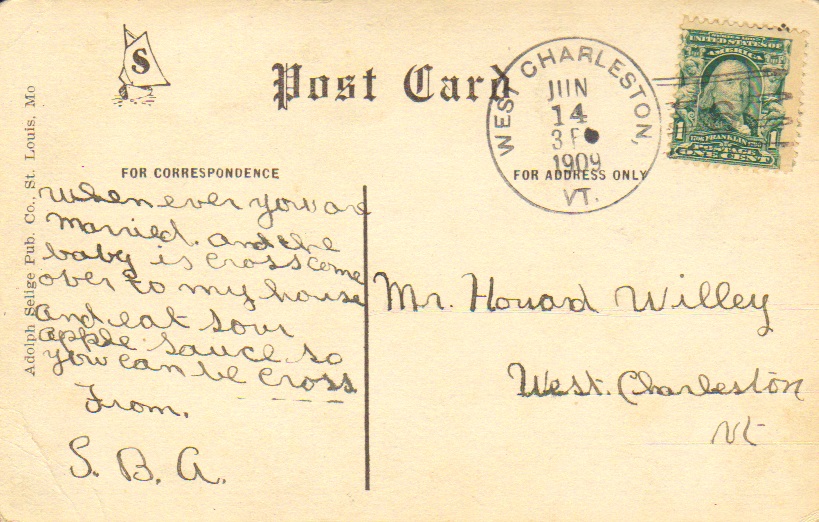 S
Post Card
WEST CHARLESTON,
JUN
14
3 P
1909
VT.
UNITED STATES OF
AMERICA
1 FRANKLIN 1
POSTAGE
ONE CENT
Adolph Selige Pub. Co., St. Louis, Mo
FOR CORRESPONDENCE
FOR ADDRESS ONLY
when ever you are
married. and the
baby is cross come
over to my house
and eat sour
apple sauce so
you can be cross
From.
S. B. A.
Mr. Howard Willey
West. Charleston
Vt